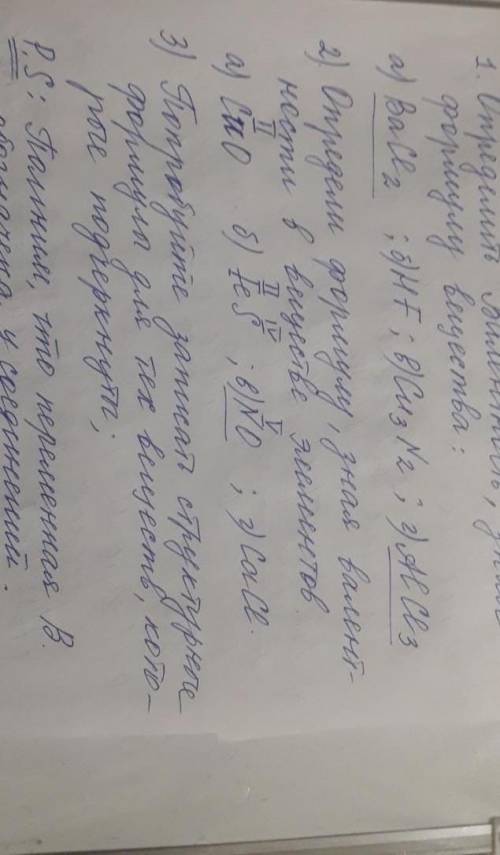 1. Определить валентность, зная
формулу вещества:
а) BaCl2 ; б) HF ; в) Cu3N2 ; г) AlCl3
2) Определи формулу, зная валент-
ности в веществе элементов.
II II IV V
а) CuO б) FeS ; в) NO ; г) CaCl.
3) Попробуйте записать структурные
формулы для тех веществ, кото-
рые подчеркнуты;
P.S: Помним, что переменная В.
у соединений.